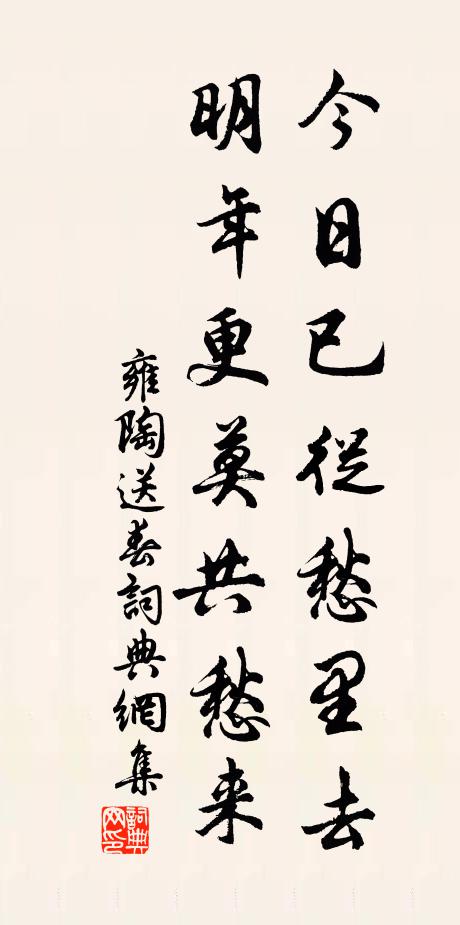 今日已從愁里去
明年更莫共愁来
雍陶送春詞典網集
詞典网印